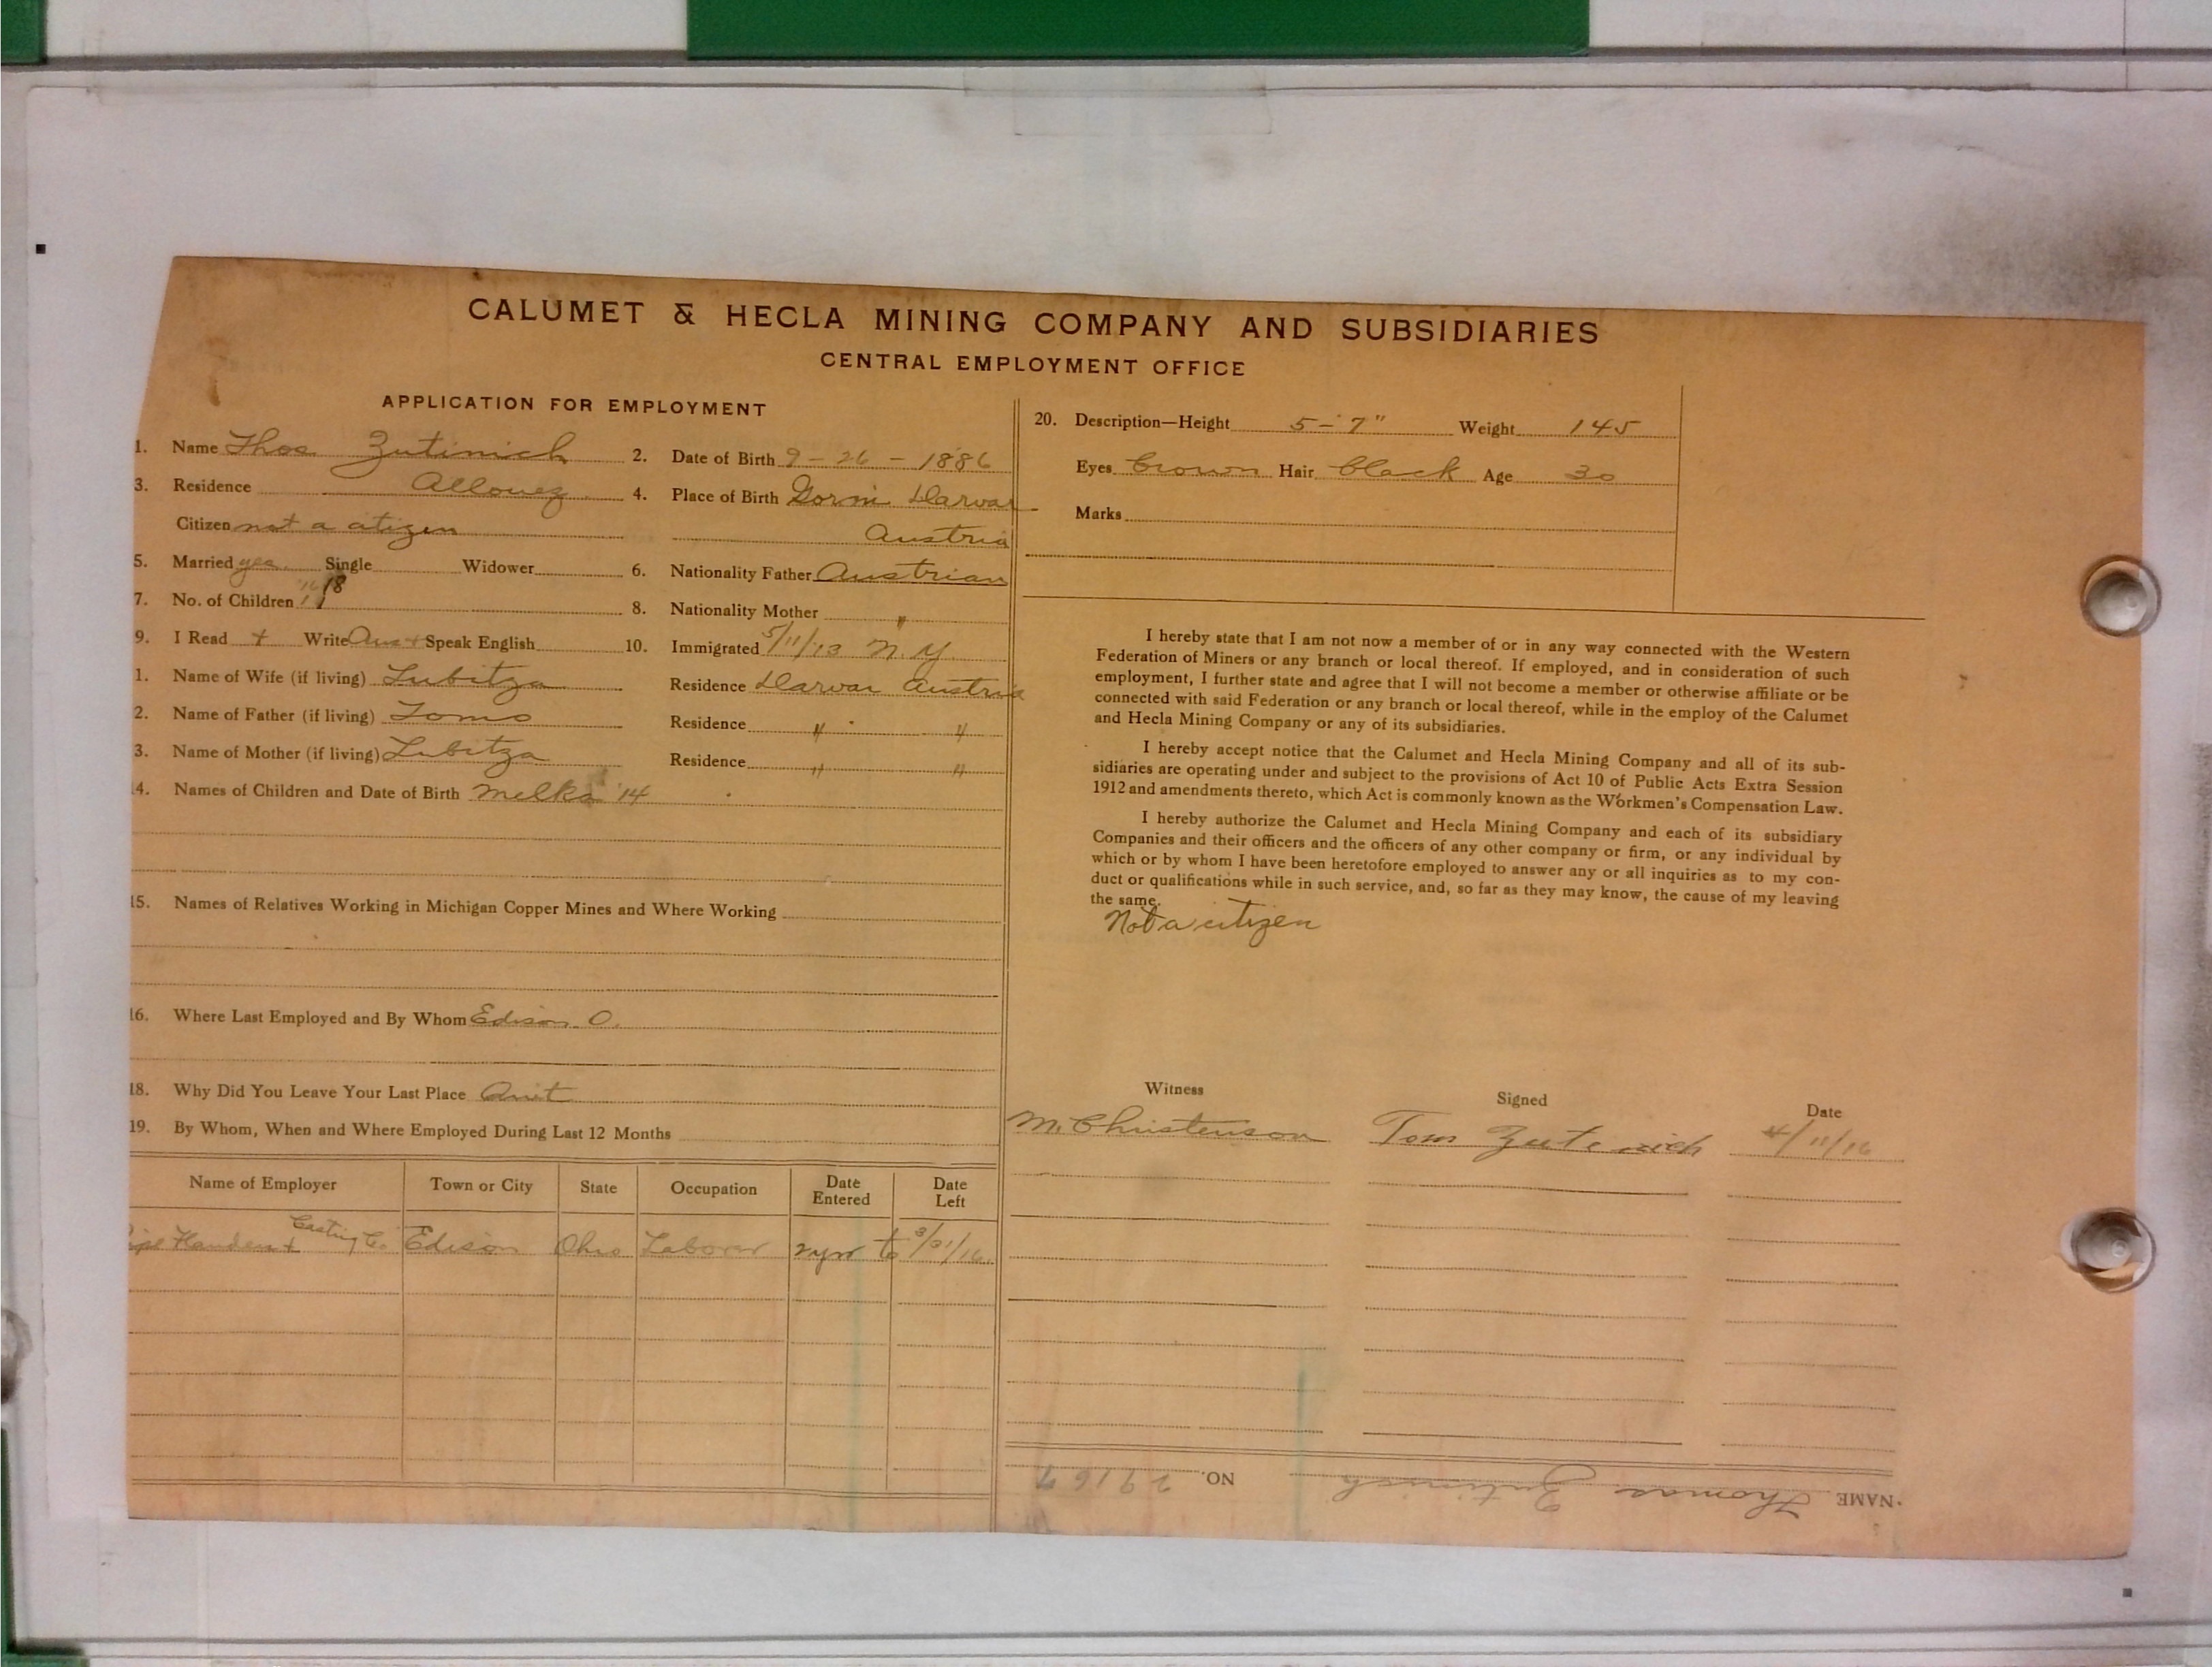 CALUMET & HECLA MINING COMPANY AND SUBSIDIARIES
CENTRAL EMPLOYMENT OFFICE
APPLICATION FOR EMPLOYMENT
1. Name Thos Zutinich 2. Date of Birth 9-26-1886
3. Residence Allouez 4. Place of Birth Gorni Darvar
Citizen not a citizen Austria
5. Married yes Single Widower 6. Nationality Father Austrian
7. No. of Children 8. Nationality Mother "
9. I Read + Write Aus + Speak English 10. Immigrated 5/11/13 N.Y.
1. Name of Wife (if living) Lubitza Residence Darvar Austria
2. Name of Father (if living) Tomo Residence " "
3. Name of Mother (if living) Lubitza Residence " "
14. Names of Children and Date of Birth Melka '14
15. Names of Relatives Working in Michigan Copper Mines and Where Working
16. Where Last Employed and By Whom Edison O.
18. Why Did You Leave Your Last Place Quit
19. By Whom, When and Where Employed During Last 12 Months
Name of Employer Town or City State Occupation Date Entered Date Left
Casting Co. Edison Ohio Laborer 2 yrs to 3/31/16
20. Description—Height 5-7" Weight 145
Eyes brown Hair black Age 30
Marks
I hereby state that I am not now a member of or in any way connected with the Western
Federation of Miners or any branch or local thereof. If employed, and in consideration of such
employment, I further state and agree that I will not become a member or otherwise affiliate or be
connected with said Federation or any branch or local thereof, while in the employ of the Calumet
and Hecla Mining Company or any of its subsidiaries.
I hereby accept notice that the Calumet and Hecla Mining Company and all of its sub-
sidiaries are operating under and subject to the provisions of Act 10 of Public Acts Extra Session
1912 and amendments thereto, which Act is commonly known as the Workmen's Compensation Law.
I hereby authorize the Calumet and Hecla Mining Company and each of its subsidiary
Companies and their officers and the officers of any other company or firm, or any individual by
which or by whom I have been heretofore employed to answer any or all inquiries as to my con-
duct or qualifications while in such service, and, so far as they may know, the cause of my leaving
the same.
Not a citizen
Witness Signed Date
M. Christenson Tom Zutenich 4/11/16
NAME Thomas Zutinich NO. 29167